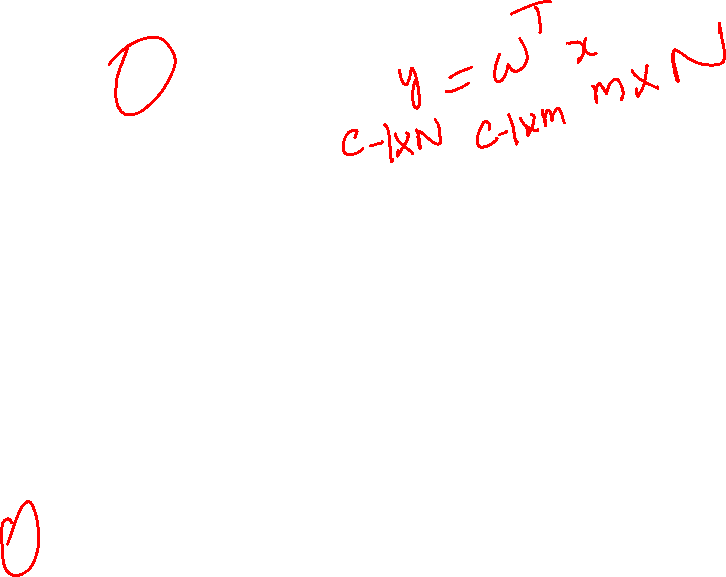 y = ω^T x
C-1×N C-1×m m×N